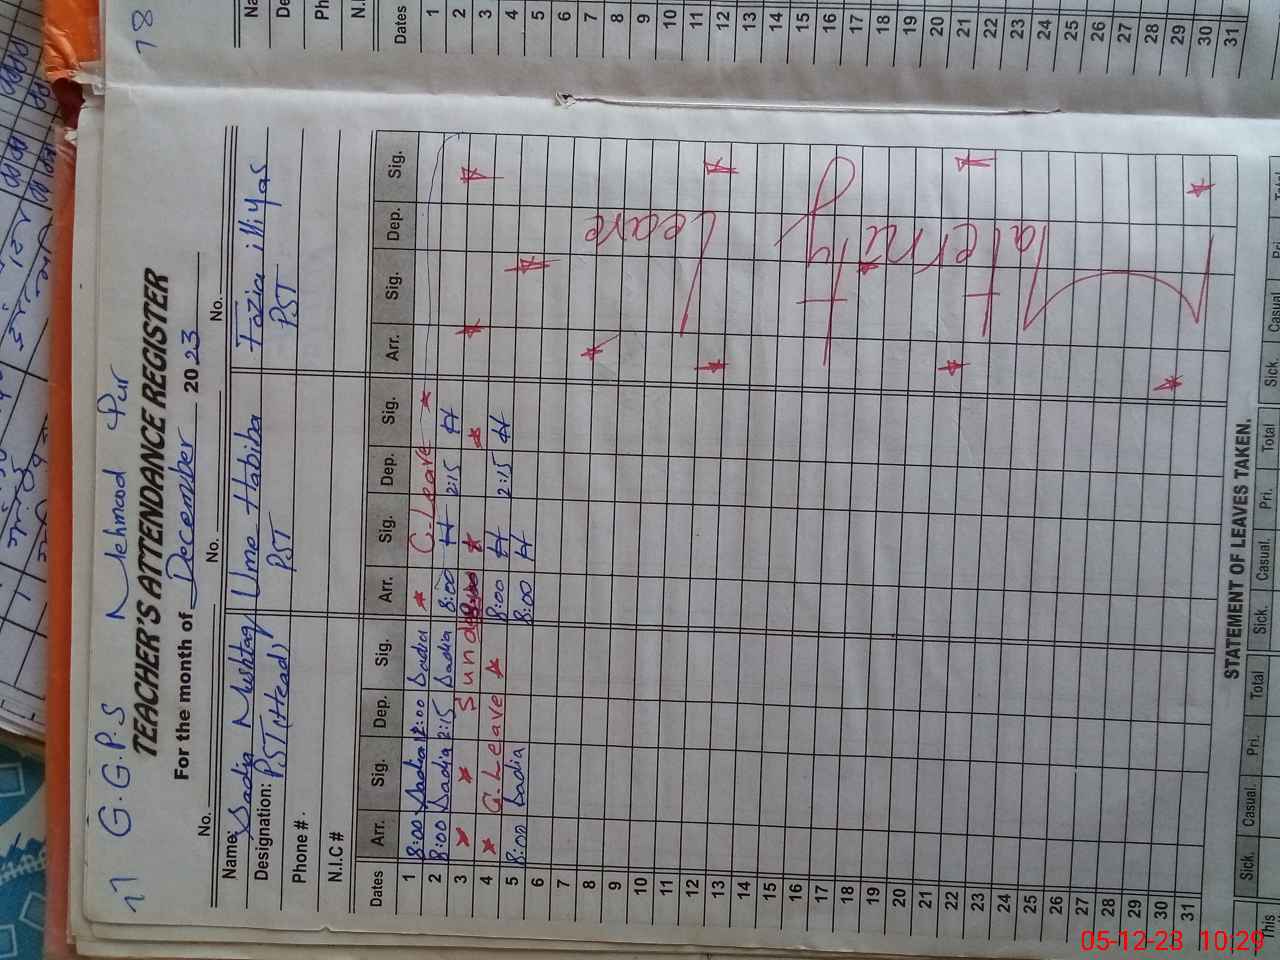 17 G.G.P.S Mehmood Pur
TEACHER'S ATTENDANCE REGISTER
For the month of December 2023
No. No. No.
Name: Sadia Mushtaq Ume Habiba Fazia illiyas
Designation: PST (Head) PST PST
Phone #.
N.I.C #
Dates Arr. Sig. Dep. Sig. Arr. Sig. Dep. Sig. Arr. Sig. Dep. Sig.
1 8:00 Sadia 12:00 Sadia * C-Leave *
2 8:00 Sadia 2:15 Sadia 8:00 H 2:15 H
3 * * Sund
4 * C.Leave * 8:00 H 2:15 H
5 8:00 Sadia 8:00 H
6
7
8
9
10
11
12
13
14
15
16
17
18
19
20
21
22
23
24
25
26
27
28
29
30
31
Maternity Leave
STATEMENT OF LEAVES TAKEN.
Sick. Casual. Pri. Total Sick. Casual. Pri. Total Sick Casual Pri. Total
This
18
Dates
1
2
3
4
5
6
7
8
9
10
11
12
13
14
15
16
17
18
19
20
21
22
23
24
25
26
27
28
29
30
31
05-12-23 10:29